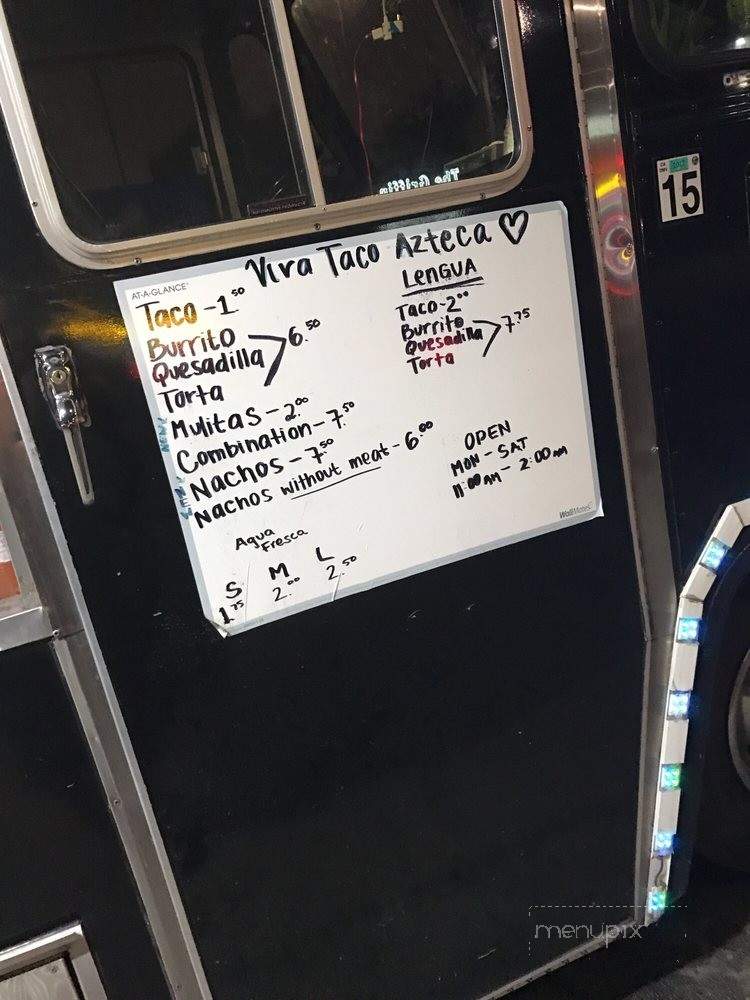 The Grillin
CA
DMV
15
AT-A-GLANCE
Viva Taco Azteca ♡
Taco - 1.50
Burrito
Quesadilla > 6.50
Torta
NEW! Mulitas - 2.00
Combination - 7.50
NEW! Nachos - 7.50
Nachos without meat - 6.00
Agua
Fresca
S M L
1.75 2.00 2.50
LENGUA
Taco - 2.00
Burrito
Quesadilla > 7.75
Torta
OPEN
MON - SAT
11:00 AM - 2:00 AM
WallMates
menupix